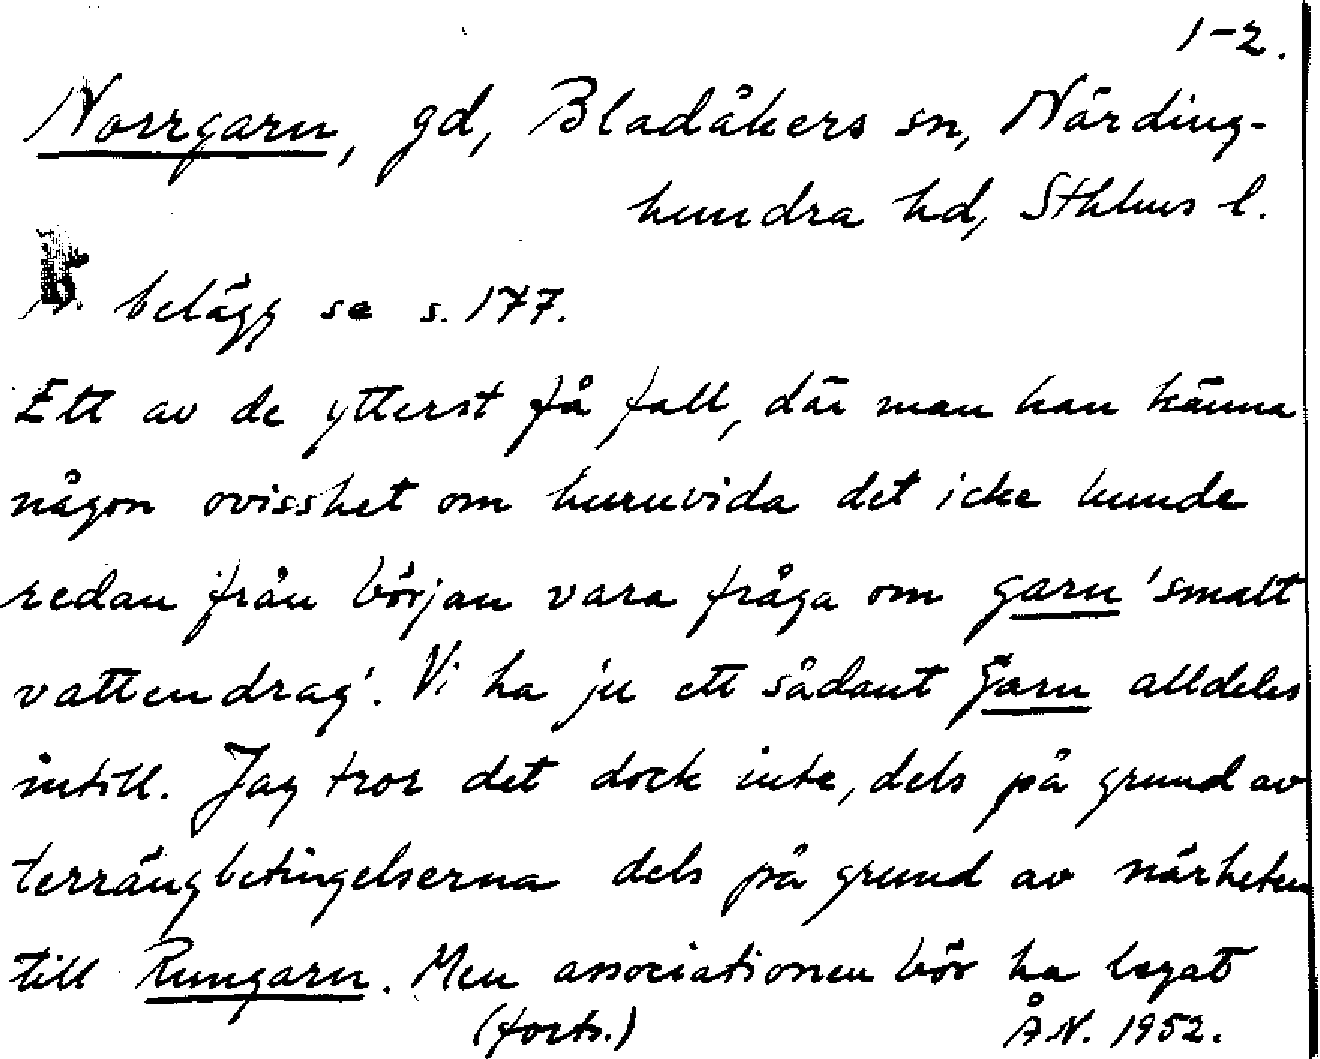 1-2.
Norrgarn, gd, Bladåkers sn, Närding-
hundra hd, Sthlms l.
belägg se s. 177.
Ett av de ytterst få fall, där man kan känna
någon ovisshet om huruvida det icke kunde
redan från början vara fråga om garn 'smalt
vattendrag'. Vi ha ju ett sådant Garn alldeles
intill. Jag tror det dock inte, dels på grund av
terrängbetingelserna dels på grund av närheten
till Rungarn. Men associationen bör ha legat
(forts.) ÅN. 1952.